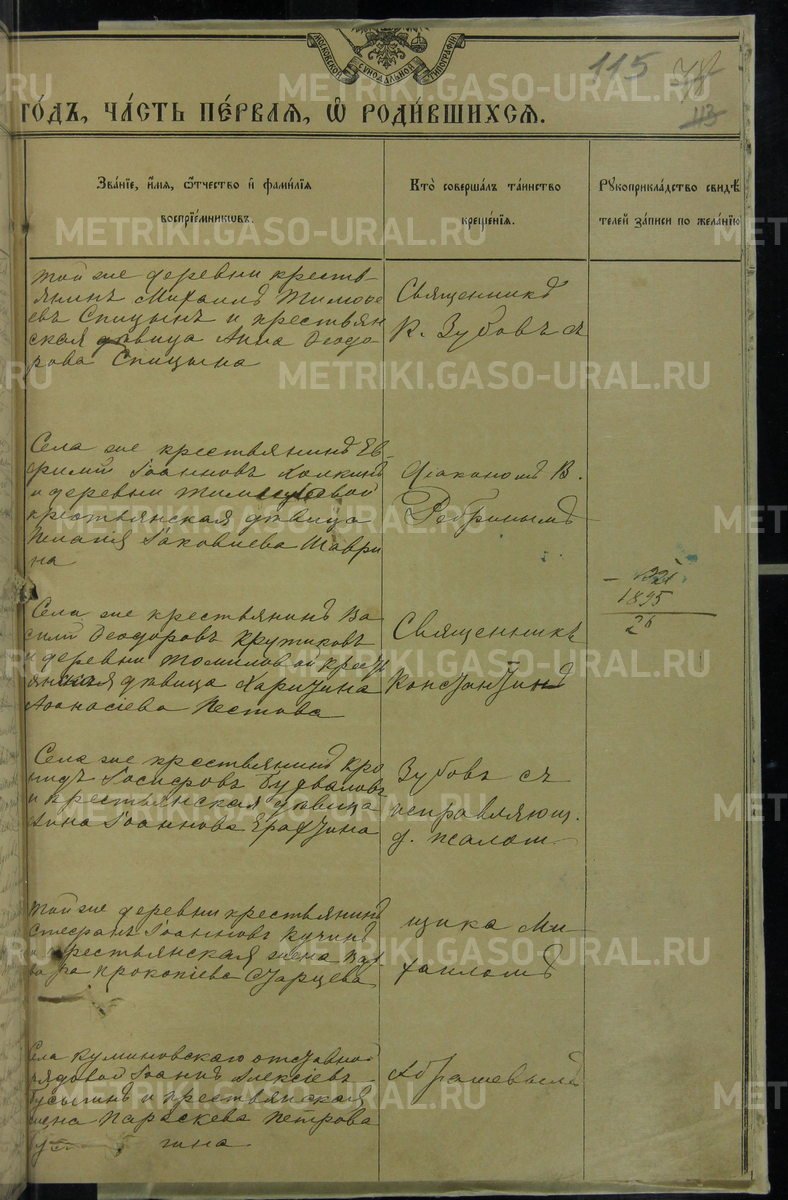 МОСКОВСКОЙ СУНОДАЛЬНОЙ ТИПОГРАФІИ
115
113
ГОДЪ, ЧАСТЬ ПЕРВАЯ, Ѿ РОДИВШИХСЯ.
Званїе, имя, ѿтчество и фамилїя
воспрїемникѡвъ.
Кто совершалъ таинство
крещенїя.
Рукоприкладство свидѣ
телей записи по желанїю
той же деревни кресть-
янинъ Михаилъ Тимоѳе
евъ Спицынъ и крестьян
ская дѣвица Анна Ѳеодо-
рова Спицына
Священникъ
К. Зубовъ съ
Села же крестьянинъ Ев-
фимій Іоанновъ Холкинъ
и деревни
крестьянская дѣвица
Пелагія Іаковлева Шаври
на
Діакономъ В.
Ребринымъ
1895
26
Села же крестьянинъ Ва
силій Ѳеодоровъ Крутиковъ
и деревни Томиловой кресть
янская дѣвица Харитина
Аѳанасіева Пестова
Священникъ
Константинъ
Села же крестьянинъ Кро
нидъ Іосифовъ
и крестьянская дѣвица
Анна Іоаннова
Зубовъ съ
исправляющ.
д. псалом-
Той же деревни крестьянинъ
Стефанъ Іоанновъ Кучинъ
и крестьянская жена Вар
вара Прокопіева Старцева
щика Ми-
хаиломъ
Села Куминовскаго отставной
рядовой Іоаннъ Алексіевъ
и крестьянская
жена Параскева Петрова
гина
Абрашевымъ
METRIKI.GASO-URAL.RU